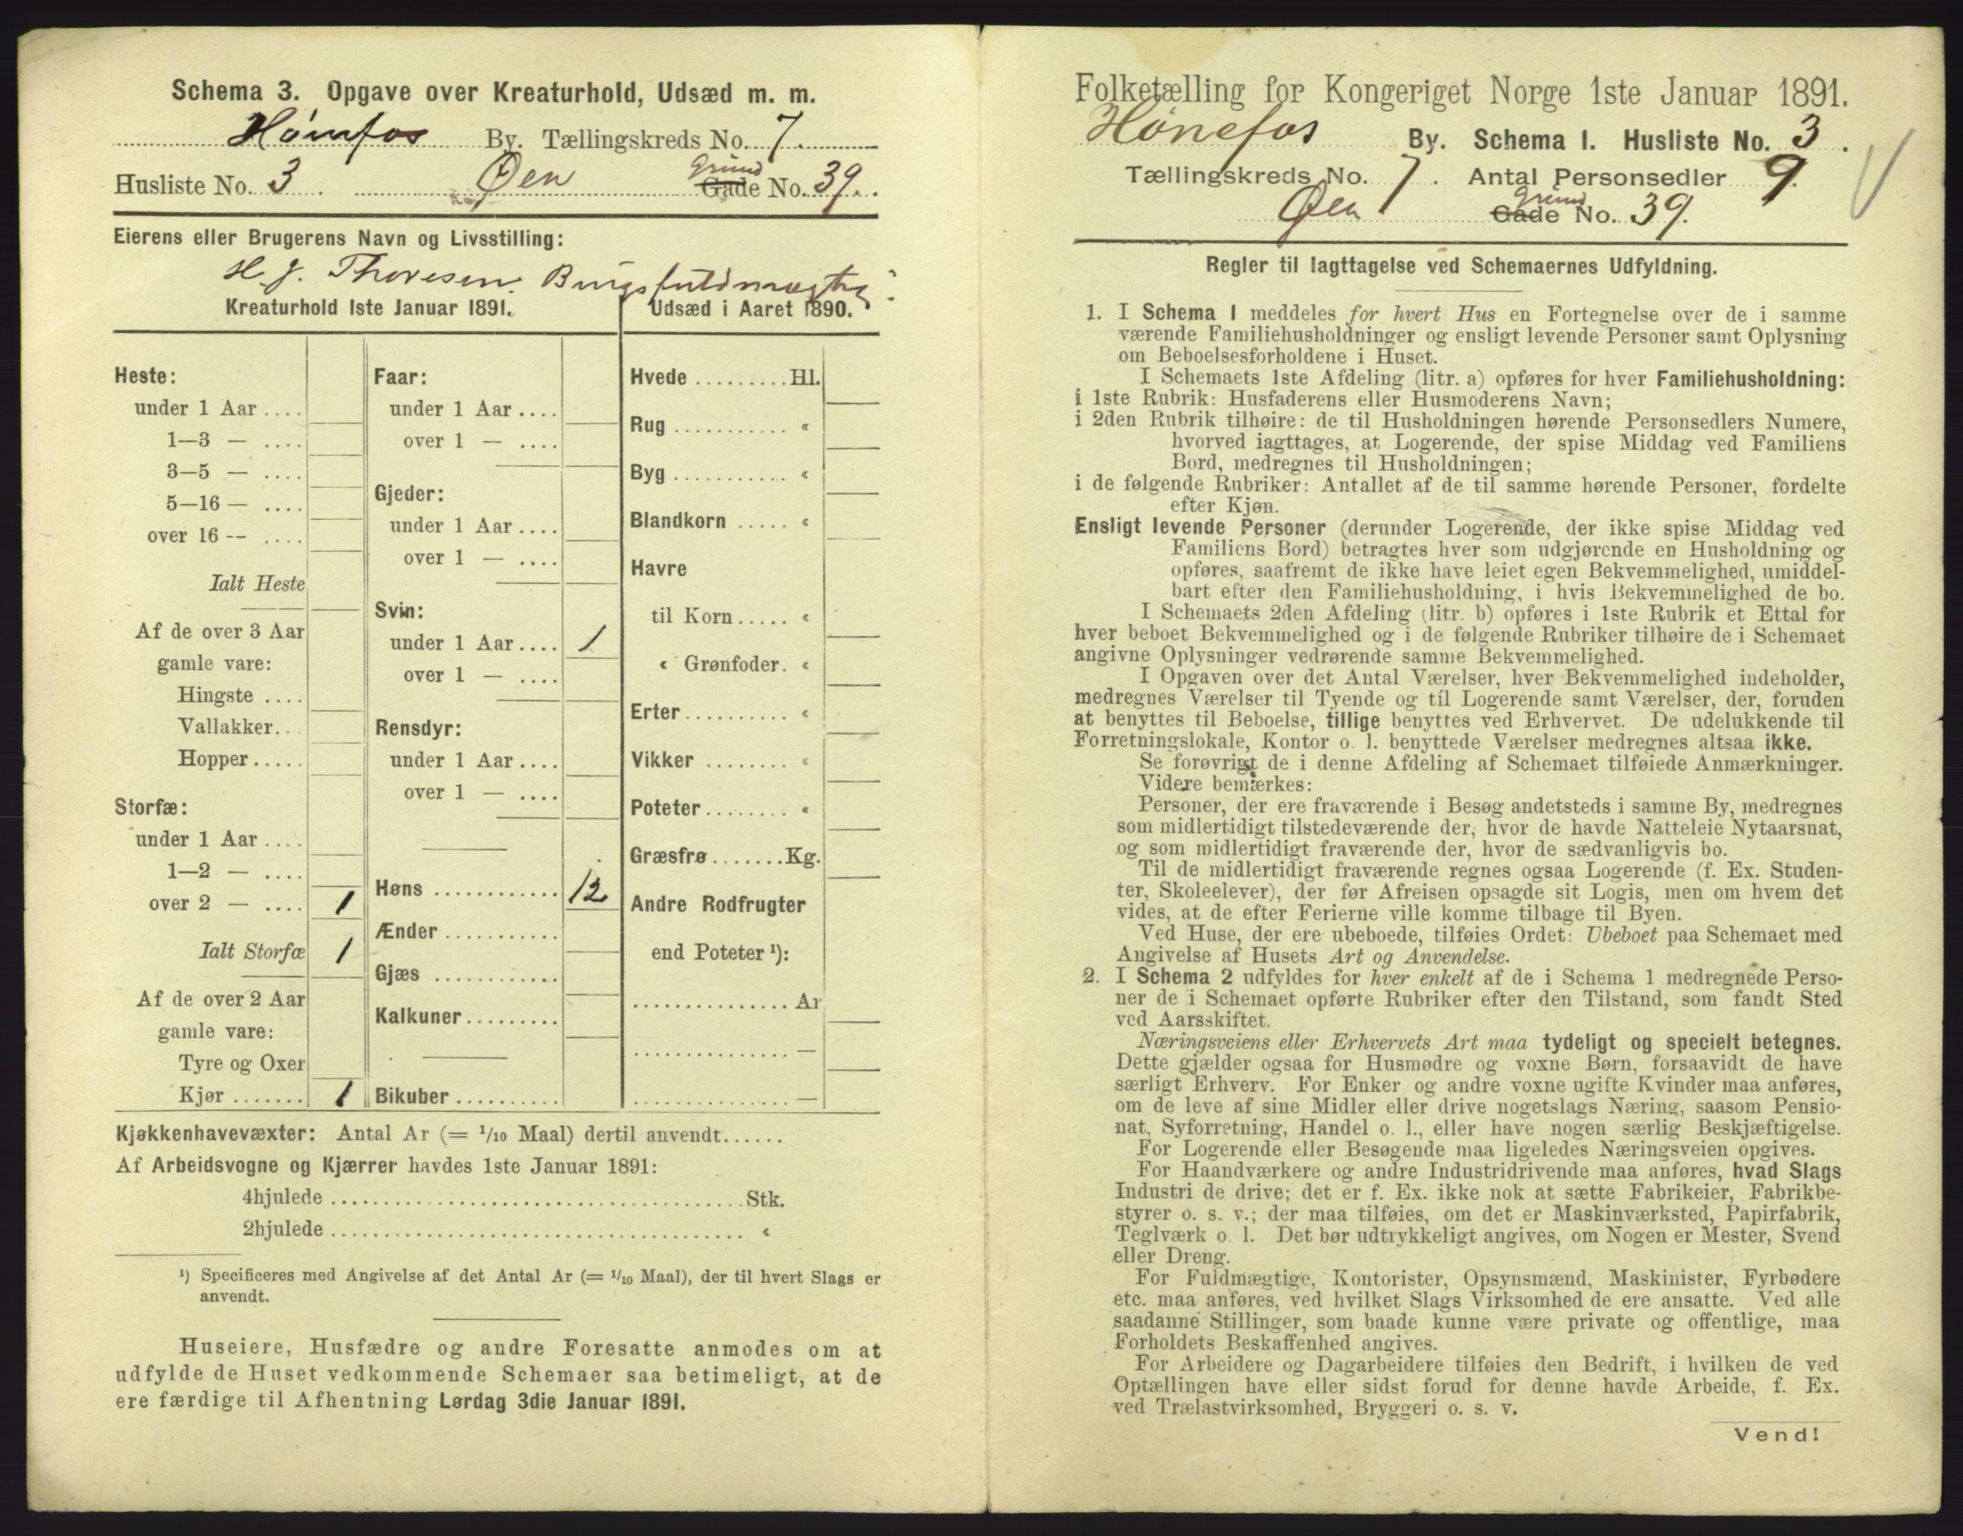 Schema 3. Opgave over Kreaturhold, Udsæd m. m.
Hønefos By. Tællingskreds No. 7.
Husliste No. 3 Øen Grund Gade No. 39.
Eierens eller Brugerens Navn og Livsstilling:
H. J. Thoresen. Brugsfuldmægtig.
Kreaturhold 1ste Januar 1891.
Heste:
under 1 Aar ....
1—3 — ....
3—5 — ....
5—16 — ....
over 16 — ....
Ialt Heste
Af de over 3 Aar
gamle vare:
Hingste ....
Vallakker...
Hopper.....
Storfæ:
under 1 Aar ....
1—2 — ....
over 2 — .... 1
Ialt Storfæ 1
Af de over 2 Aar
gamle vare:
Tyre og Oxer
Kjør ....... 1
Faar:
under 1 Aar ....
over 1 — ....
Gjeder:
under 1 Aar ....
over 1 — ....
Svin:
under 1 Aar .... 1
over 1 — ....
Rensdyr:
under 1 Aar ....
over 1 — ....
Høns ............ 12
Ænder ...........
Gjæs ............
Kalkuner.........
Bikuber..........
Udsæd i Aaret 1890.
Hvede .........Hl.
Rug ........... «
Byg ........... «
Blandkorn ..... «
Havre
til Korn ..... «
« Grønfoder. «
Erter.......... «
Vikker ........ «
Poteter........ «
Græsfrø .......Kg.
Andre Rodfrugter
end Poteter ¹):
............... Ar
............... —
............... —
Kjøkkenhavevæxter: Antal Ar (= 1/10 Maal) dertil anvendt......
Af Arbeidsvogne og Kjærrer havdes 1ste Januar 1891:
4hjulede ........................................Stk.
2hjulede ........................................ «
¹) Specificeres med Angivelse af det Antal Ar (= 1/10 Maal), der til hvert Slags er
anvendt.
Huseiere, Husfædre og andre Foresatte anmodes om at
udfylde de Huset vedkommende Schemaer saa betimeligt, at de
ere færdige til Afhentning Lørdag 3die Januar 1891.
Folketælling for Kongeriget Norge 1ste Januar 1891.
Hønefos By. Schema I. Husliste No. 3.
Tællingskreds No. 7. Antal Personsedler 9.
Øen Grund Gade No. 39.
Regler til Iagttagelse ved Schemaernes Udfyldning.
1. I Schema 1 meddeles for hvert Hus en Fortegnelse over de i samme
værende Familiehusholdninger og ensligt levende Personer samt Oplysning
om Beboelsesforholdene i Huset.
I Schemaets 1ste Afdeling (litr. a) opføres for hver Familiehusholdning:
i 1ste Rubrik: Husfaderens eller Husmoderens Navn;
i 2den Rubrik tilhøire: de til Husholdningen hørende Personsedlers Numere,
hvorved iagttages, at Logerende, der spise Middag ved Familiens
Bord, medregnes til Husholdningen;
i de følgende Rubriker: Antallet af de til samme hørende Personer, fordelte
efter Kjøn.
Ensligt levende Personer (derunder Logerende, der ikke spise Middag ved
Familiens Bord) betragtes hver som udgjørende en Husholdning og
opføres, saafremt de ikke have leiet egen Bekvemmelighed, umiddel-
bart efter den Familiehusholdning, i hvis Bekvemmelighed de bo.
I Schemaets 2den Afdeling (litr. b) opføres i 1ste Rubrik et Ettal for
hver beboet Bekvemmelighed og i de følgende Rubriker tilhøire de i Schemaet
angivne Oplysninger vedrørende samme Bekvemmelighed.
I Opgaven over det Antal Værelser, hver Bekvemmelighed indeholder,
medregnes Værelser til Tyende og til Logerende samt Værelser, der, foruden
at benyttes til Beboelse, tillige benyttes ved Erhvervet. De udelukkende til
Forretningslokale, Kontor o. l. benyttede Værelser medregnes altsaa ikke.
Se forøvrigt de i denne Afdeling af Schemaet tilføiede Anmærkninger.
Videre bemærkes:
Personer, der ere fraværende i Besøg andetsteds i samme By, medregnes
som midlertidigt tilstedeværende der, hvor de havde Natteleie Nytaarsnat,
og som midlertidigt fraværende der, hvor de sædvanligvis bo.
Til de midlertidigt fraværende regnes ogsaa Logerende (f. Ex. Studen-
ter, Skoleelever), der før Afreisen opsagde sit Logis, men om hvem det
vides, at de efter Ferierne ville komme tilbage til Byen.
Ved Huse, der ere ubeboede, tilføies Ordet: Ubeboet paa Schemaet med
Angivelse af Husets Art og Anvendelse.
2. I Schema 2 udfyldes for hver enkelt af de i Schema 1 medregnede Perso-
ner de i Schemaet opførte Rubriker efter den Tilstand, som fandt Sted
ved Aarsskiftet.
Næringsveiens eller Erhvervets Art maa tydeligt og specielt betegnes.
Dette gjælder ogsaa for Husmødre og voxne Børn, forsaavidt de have
særligt Erhverv. For Enker og andre voxne ugifte Kvinder maa anføres,
om de leve af sine Midler eller drive nogetslags Næring, saasom Pensio-
nat, Syforretning, Handel o. l., eller have nogen særlig Beskjæftigelse.
For Logerende eller Besøgende maa ligeledes Næringsveien opgives.
For Haandværkere og andre Industridrivende maa anføres, hvad Slags
Industri de drive; det er f. Ex. ikke nok at sætte Fabrikeier, Fabrikbe-
styrer o. s. v.; der maa tilføies, om det er Maskinværksted, Papirfabrik,
Teglværk o. l. Det bør udtrykkeligt angives, om Nogen er Mester, Svend
eller Dreng.
For Fuldmægtige, Kontorister, Opsynsmænd, Maskinister, Fyrbødere
etc. maa anføres, ved hvilket Slags Virksomhed de ere ansatte. Ved alle
saadanne Stillinger, som baade kunne være private og offentlige, maa
Forholdets Beskaffenhed angives.
For Arbeidere og Dagarbeidere tilføies den Bedrift, i hvilken de ved
Optællingen have eller sidst forud for denne havde Arbeide, f. Ex.
ved Trælastvirksomhed, Bryggeri o. s. v.
Vend!